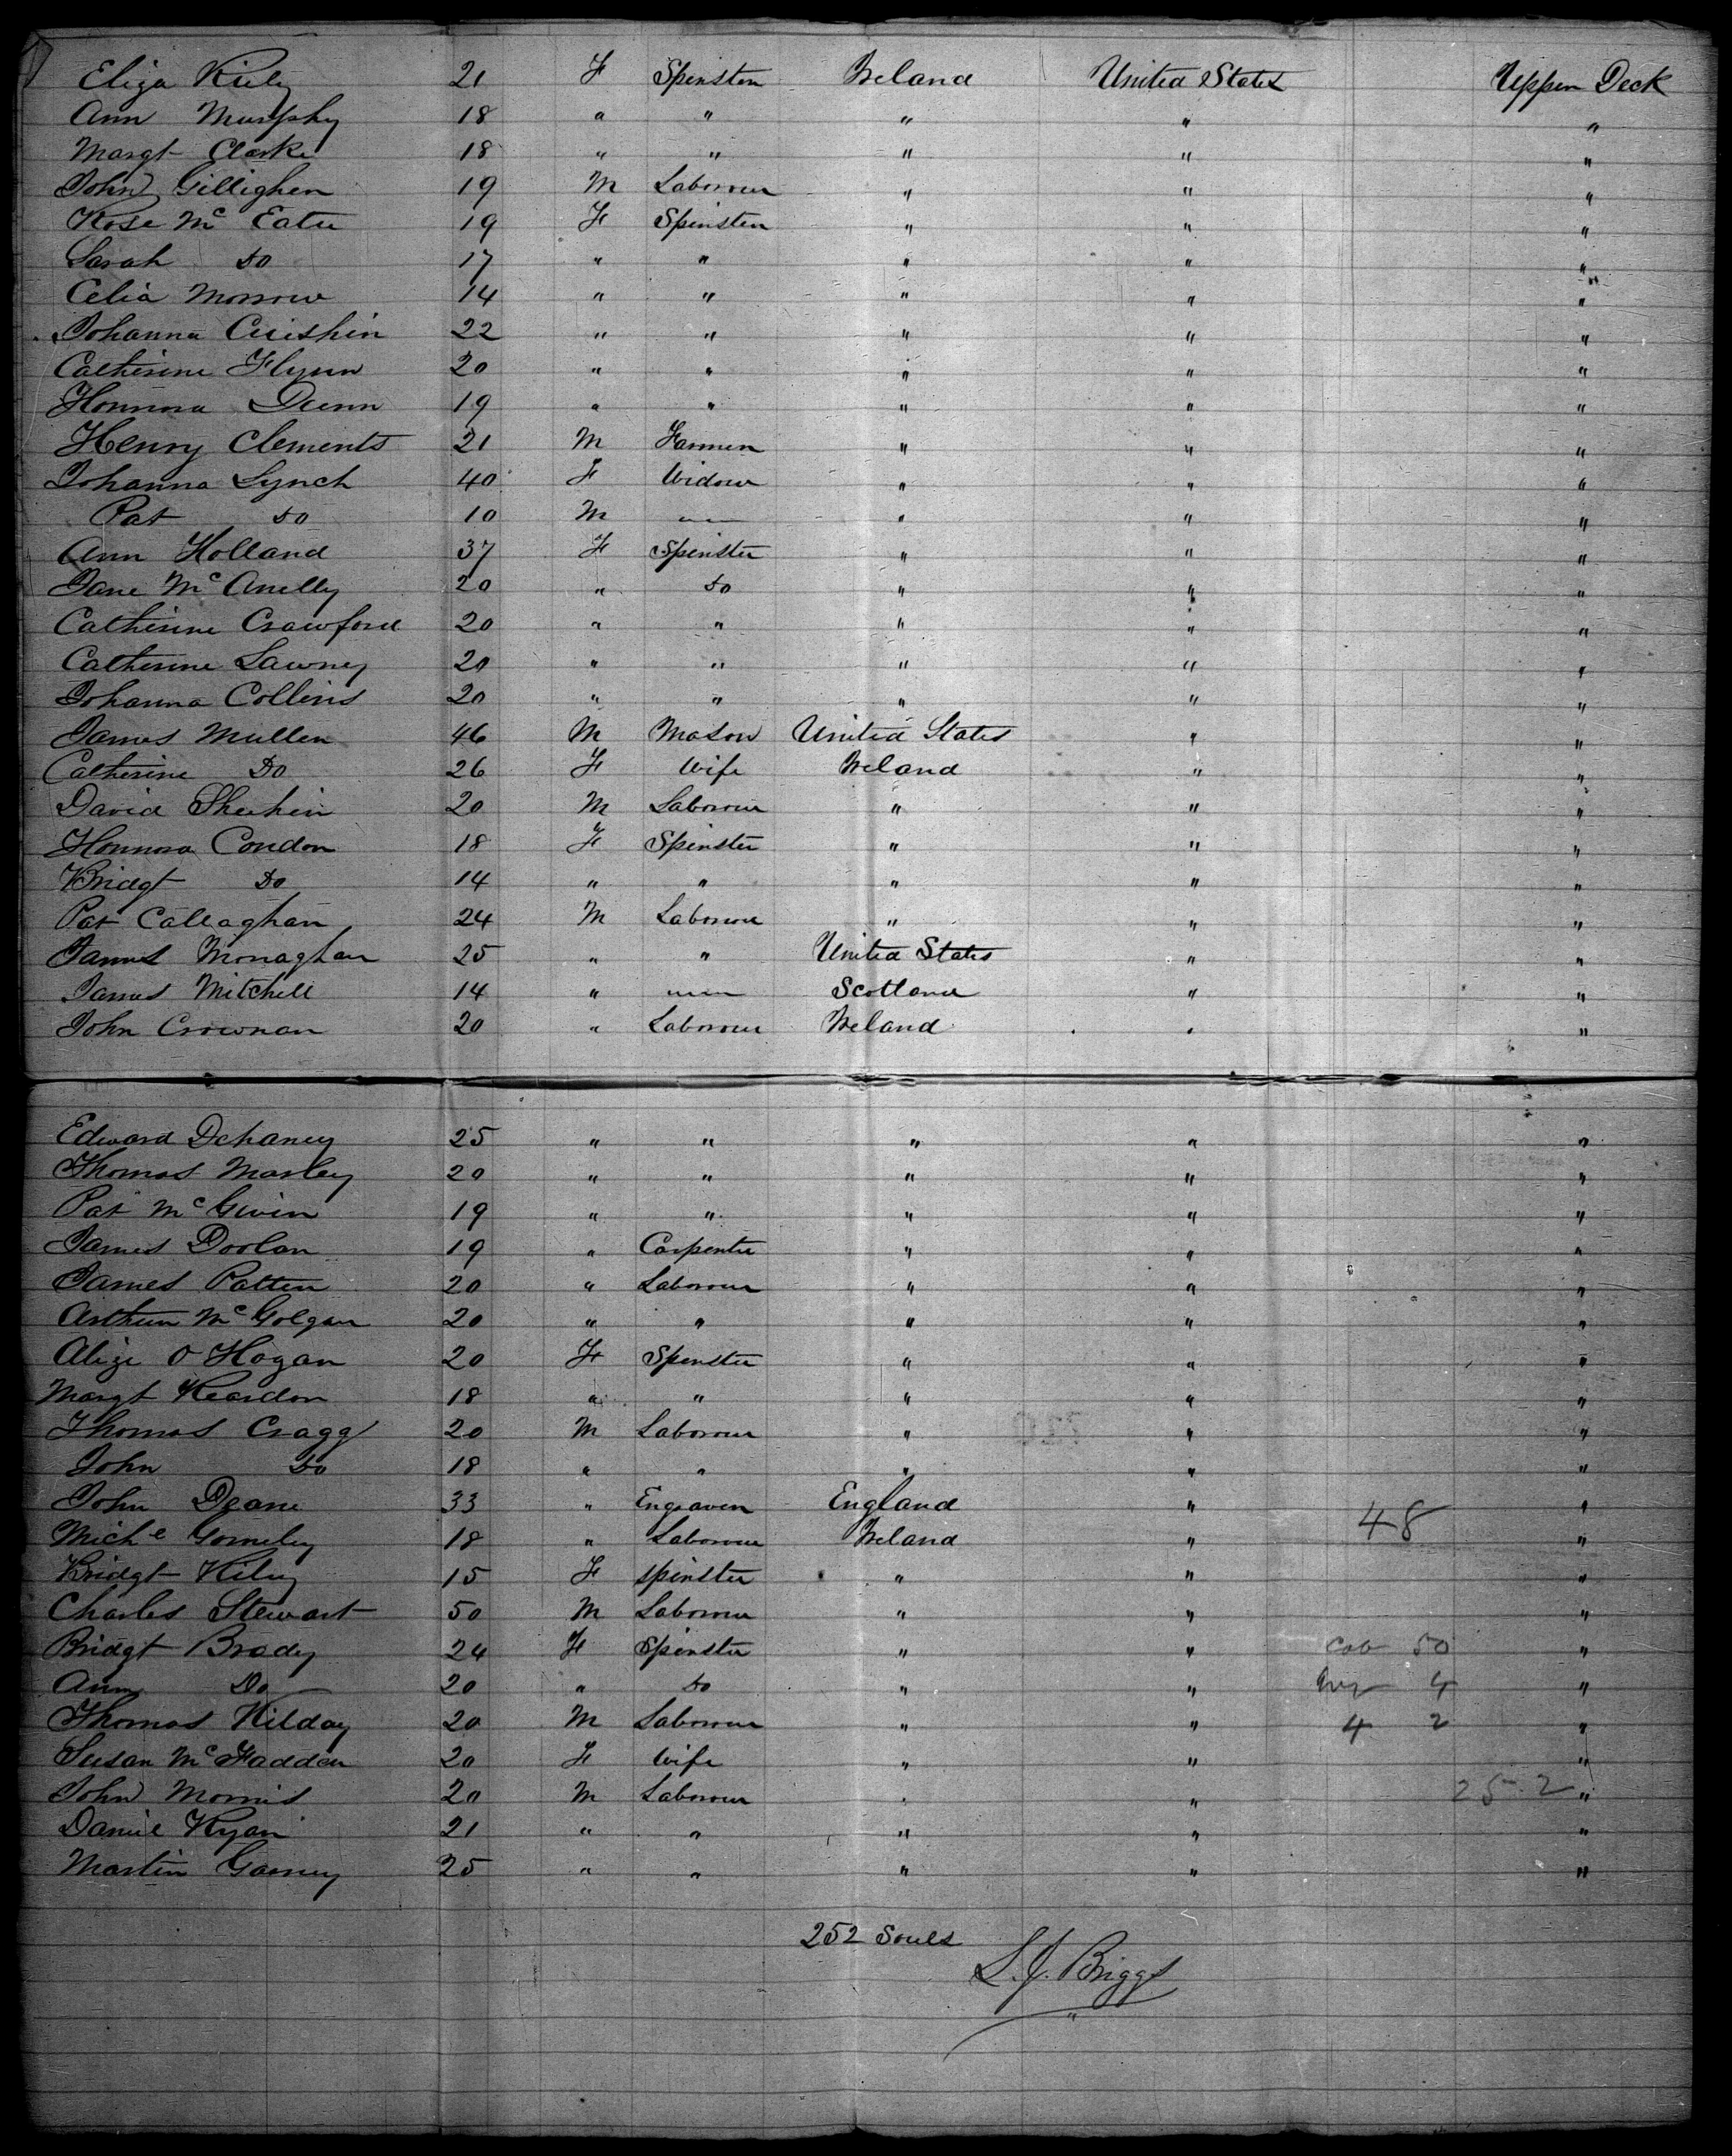 Eliza Kiely 21 F Spinster Ireland United States Upper Deck
Ann Murphy 18 " " " " "
Margt Clarke 18 " " " " "
John Gillighen 19 M Labourer " " "
Rose Mc Entee 19 F Spinster " " "
Sarah Do 17 " " " " "
Celia Morrow 14 " " " " "
Johanna 22 " " " " "
Catherine Flynn 20 " " " " "
Honnora Dunn 19 " " " " "
Henry Clements 21 M Farmer " " "
Johanna Lynch 40 F Widow " " "
Pat Do 10 M " " "
Ann Holland 37 F Spinster " " "
Jane Mc Anelly 20 " Do " " "
Catherine Crawford 20 " " " " "
Catherine Lawney 20 " " " " "
Johanna Collins 20 " " " " "
James Mullen 46 M Mason United States " "
Catherine Do 26 F Wife Ireland " "
David Sheehin 20 M Labourer " " "
Honnora Condon 18 F Spinster " " "
Bridgt Do 14 " " " " "
Pat Callaghan 24 M Labourer " " "
James Monaghan 25 " " United States " "
James Mitchell 14 " Scotland " "
John Crownan 20 " Labourer Ireland " "
Edward Dehaney 25 " " " " "
Thomas Marley 20 " " " " "
Pat Mc Givin 19 " " " " "
James Doolan 19 " Carpenter " " "
James Patten 20 " Labourer " " "
Arthur Mc Golgan 20 " " " " "
Alize O Hogan 20 F Spinster " " "
Margt Reardon 18 " " " " "
Thomas Cragg 20 M Labourer " " "
John Do 18 " " " " "
John Deane 33 " Engraver England " "
Miche Gormley 18 " Labourer Ireland " 48 "
Bridgt Kiley 15 F spinster " " "
Charles Stewart 50 M Labourer " " "
Bridgt Brady 24 F Spinster " " Cab 50 "
Ann Do 20 " Do " " 4 "
Thomas Kilday 20 M Labourer " " 4 2 "
Susan Mc Fadden 20 F Wife " " "
John Morris 20 M Labourer " " 252 "
Daniel Ryan 21 " " " " "
Martin Garney 25 " " " " "
252 Souls
L. J. Briggs